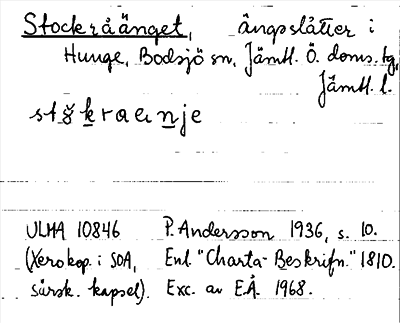 Stockråänget, ängsslåtter i
Hunge, Bodsjö sn, Jämtl. Ö. doms. tg,
Jämtl. l.
ULMA 10846 P. Andersson 1936, s. 10.
(Xerokop. i SOA, Enl. "Charta-Beskrifn." 1810.
särsk. kapsel). Exc. av E.Å. 1968.